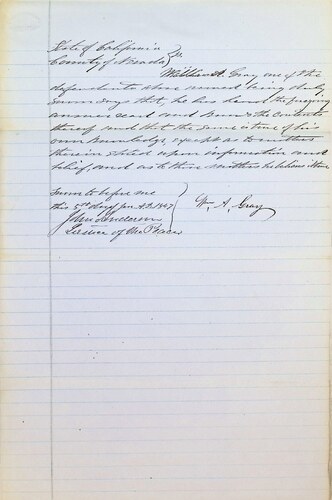 State of California
County of Nevada } ss
William A. Gray one of the
defendants above named being duly
sworn says that he has heard the foregoing
answer read and knows the contents
thereof and that the same is true of his
own knowledge except as to matters
therein stated upon information and
belief, and as to those matters he believes it true
Sworn to before me
this 5th day of Jan A.D. 1867
W. A. Gray
John Anderson
Justice of the Peace